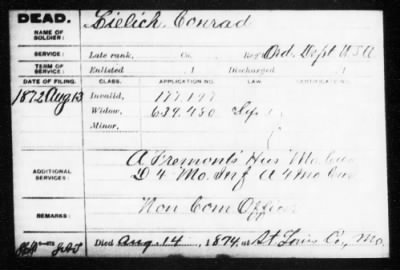 DEAD.
NAME OF SOLDIER: Lielich, Conrad
SERVICE: Late rank, Co. Reg't Ord. Dept U.S.A
TERM OF SERVICE: Enlisted 1 Discharged 1
DATE OF FILING. CLASS. APPLICATION NO. LAW. CERTIFICATE NO.
1872 Aug 13 Invalid, 177.197
Widow, 639.450
Minor,
ADDITIONAL SERVICES: A Fremont's Hus Mo Cav
D 4 Mo Inf A 4 Mo Cav
REMARKS: Non Com Officer
Died Aug. 14, 1874, at St Louis Co., Mo.